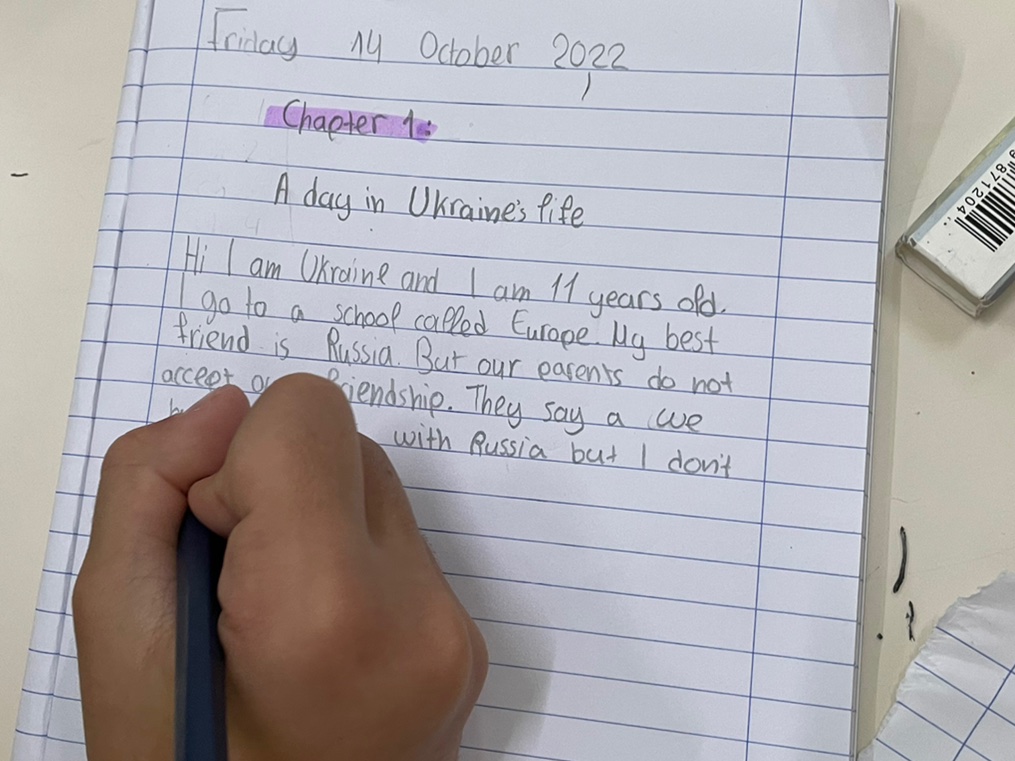 Friday 14 October 2022
Chapter 1:
A day in Ukraine's life
Hi I am Ukraine and I am 11 years old.
I go to a school called Europe. My best
friend is Russia. But our parents do not
accept friendship. They say a we
with Russia but I don't
871204